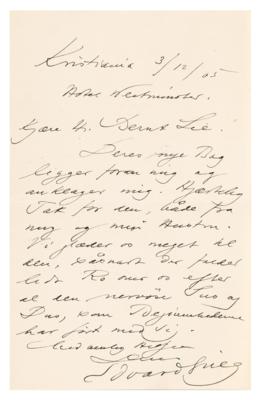 Kristiania 3/12/05
Hotel Westminster.
Kjære Hr. Bernt Lie!
Deres nye Bog
ligger foran mig og
anklager mig. Hjertelig
Tak for den, både fra
mig og min Hustru.
Vi glæder os meget til
den, såsnart der falder
lidt Ro over os efter
al den nervöse Sus og
Dus, som Begivenhederne
har fört med sig.
Med venlig Hilsen
Deres
Edvard Grieg